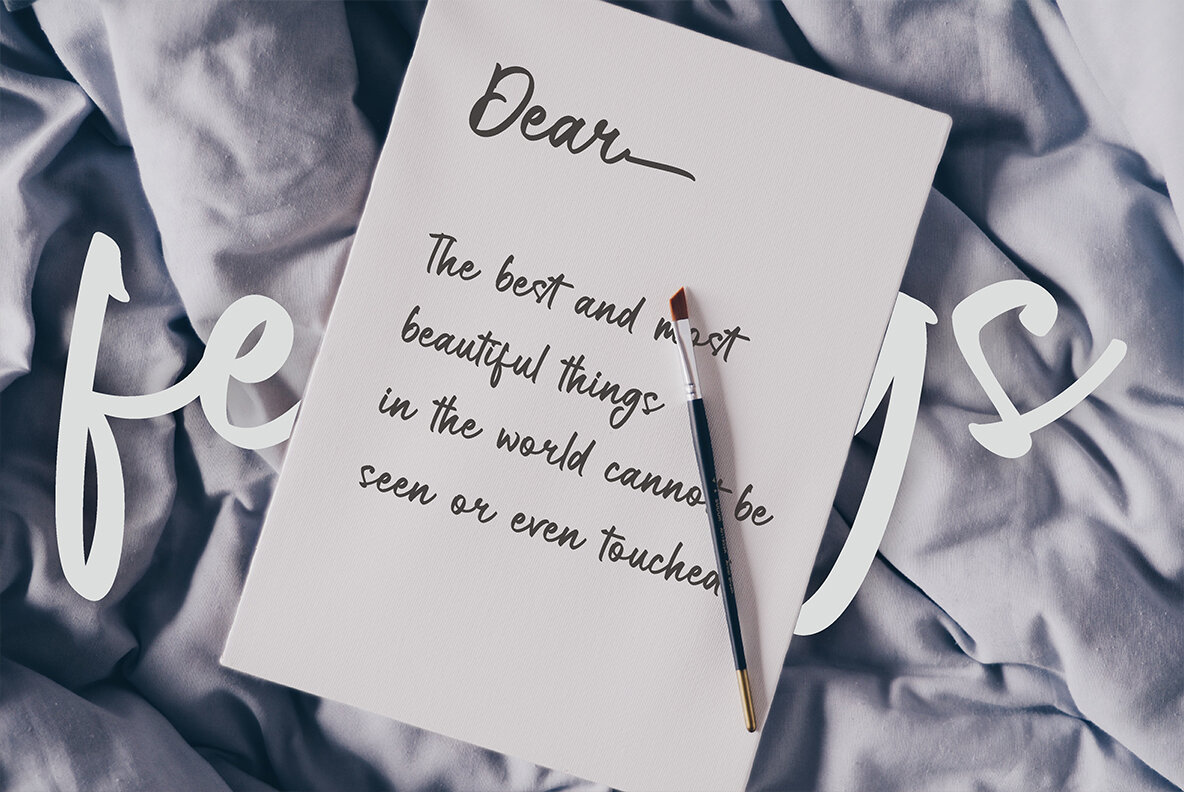 Dear
The best and most
beautiful things
in the world cannot be
seen or even touched